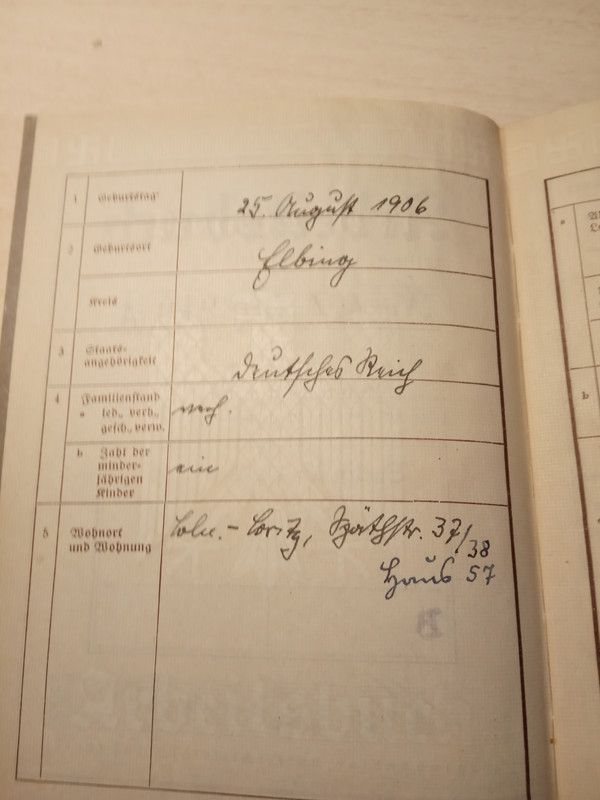 1 Geburtstag 25. August 1906
2 Geburtsort Elbing
Kreis
3 Staats-
angehörigkeit Deutsches Reich
4 Familienstand
a led., verh., verh.
gesch., verw.
b Zahl der
minder- ein
jährigen
Kinder
5 Wohnort Bln.- Britz, Späthstr. 37/38
und Wohnung
Haus 57
a
b